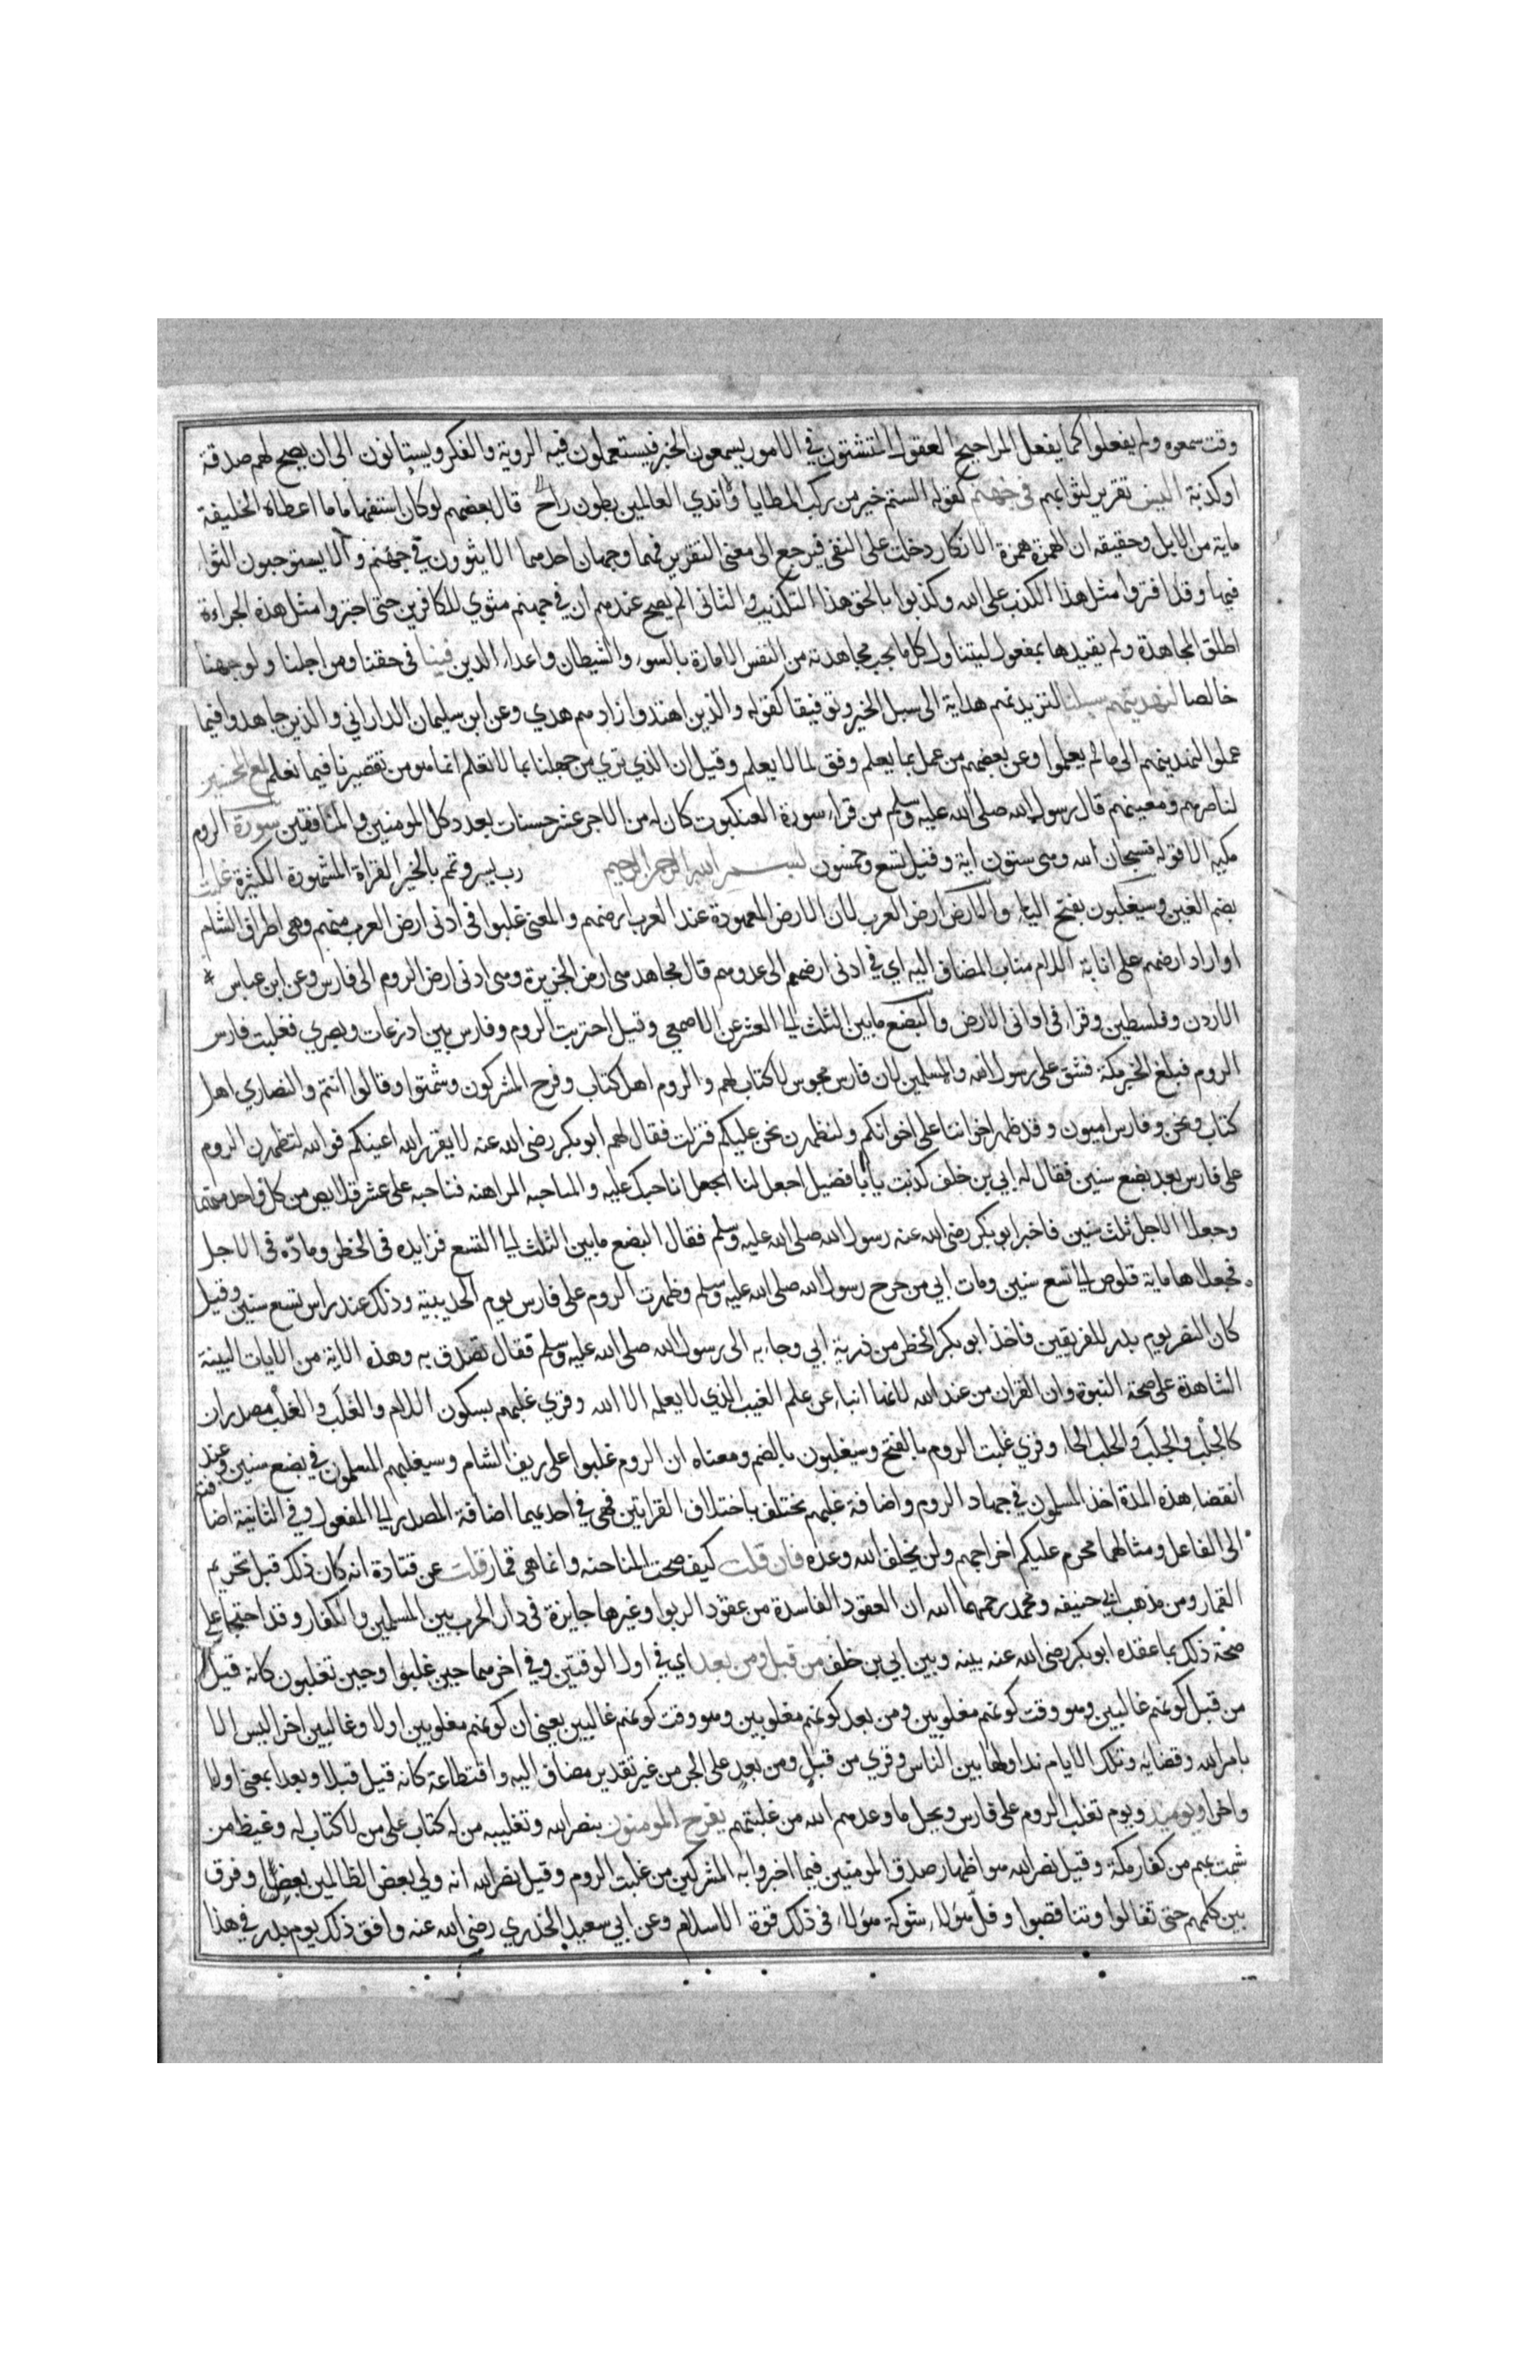 وقت سمعوه ولم يفعلوا كما يفعل المراجيح العقول المتثبتون في الامور يسمعون الخبر فيستعملون فيه الروية والفكر ويستانون الى ان يصح لهم صدقه
او كذبه اليس تقرير لثوايهم في جهنم كقوله الستم خير من ركب المطايا واندي العالمين بطون راح قال بعضهم لو كان استفهاما ما اعطاه الخليفة
ماية من الابل وحقيقته ان الهمزة همزة الانكار دخلت على النفي فيرجع الى معنى التقرير فهما وجهان احدهما الا يثوون في جهنم والا يستوجبون الثواء
فيها وقد افتروا مثل هذا الكذب على الله وكذبوا بالحق هذا التكذيب والثاني الم يصح عندهم ان في جهنم مثوي للكافرين حتى اجتروا مثل هذه الجراءة
اطلق المجاهدة ولم يقيدها بمفعول ليتناول كل ما يجب مجاهدته من النفس الامارة بالسوء والشيطان واعداء الدين فينا في حقنا ومن اجلنا ولوجهنا
خالصا لنهدينهم سبلنا لنزيدنهم هداية الى سبل الخير وتوفيقا كقوله والذين اهتدوا زادهم هدي وعن ابن سليمان الداراني والذين جاهدوا فيما
عملوا لنهدينهم الى ما لم يعلموا وعن بعضهم من عمل بما يعلم وفق لما لا يعلم وقيل ان الذي نري من جهلنا بما لا نعلم انما هو من تقصيرنا فيما نعلم لمع المحسنين
لناصرهم ومعينهم قال رسول الله صلى الله عليه وسلم من قراء سورة العنكبوت كان له من الاجر عشر حسنات بعدد كل المومنين والمنافقين سورة الروم
مكيه الا قوله فسبحان الله وهي ستون اية وقيل تسع وخمسون بسم الله الرحمن الرحيم رب يسر وتمم بالخير القراة المشهورة الكثيرة غلبت
بضم الغين وسيغلبون بفتح الياء والارض ارض العرب لان الارض المعهودة عند العرب ارضهم والمعنى غلبوا في ادنى ارض العرب منهم وهي اطراف الشام
او اراد ارضهم على انابة اللام مناب المضاف اليه اي في ادنى ارضهم الى عدوهم قال مجاهد هي ارض الجزيرة وهي ادنى ارض الروم الى فارس وعن ابن عباس
الاردن وفلسطين وقراء في اواني الارض والبضع ما بين الثلث الى العشر عن الاصمعي وقيل احتربت الروم وفارس بين اذرعات وبصري فغلبت فارس
الروم فبلغ الخبر مكة فشق على رسول الله والمسلمين لان فارس مجوس لا كتاب لهم والروم اهل كتاب وفرح المشركون وشمتوا وقالوا انتم والنصاري اهل
كتاب ونحن وفارس اميون وقد ظهر اخواننا على اخوانكم ولنظهرن نحن عليكم فنزلت فقال لهم ابو بكر رضى الله عنه لا يقرر الله اعينكم فوالله لتظهرن الروم
على فارس بعد بضع سنين فقال له ابي بن خلف كذبت يا ابا فضيل اجعل لنا اجلا اناحبك عليه والمناحبه المراهنه فناحبه على عشر قلايص من كل واحد منهما
وجعلا الاجل ثلث سنين فاخبر ابو بكر رضى الله عنه رسول الله صلى الله عليه وسلم فقال البضع ما بين الثلث الى التسع فزايده في الخطر وماده في الاجل
فجعلاها ماية قلوص الى تسع سنين ومات ابي من جرح رسول الله صلى الله عليه وسلم وظهرت الروم على فارس يوم الحديبية وذلك عند راس تسع سنين وقيل
كان النصر يوم بدر للفريقين فاخذ ابو بكر الخطر من ذرية ابي وجاء به الى رسول الله صلى الله عليه وسلم فقال تصدق به وهذه الاية من الايات البينة
الشاهدة على صحة النبوة وان القران من عند الله لانها انباء عن علم الغيب الذي لا يعلمه الا الله وقري غلبهم بسكون اللام والغلب والغلب مصدران
كالجلب والجلب والحلب الحاء وقري غلبت الروم بالفتح وسيغلبون بالضم ومعناه ان الروم غلبوا على ريف الشام وسيغلبهم المسلمون في بضع سنين وعند
انقضاء هذه المدة اخذ المسلمون في جهاد الروم واضافة غلبهم تختلف باختلاف القراتين فهي في احديهما اضافة المصدر الى المفعول وفي الثانية اضا فته
الى الفاعل ومثالهما محرم عليكم اخراجهم ولن يخلف الله وعده فان قلت كيف صحت المناحبه وانما هي قمار قلت عن قتادة انه كان ذلك قبل تحريم
القمار ومن مذهب ابي حنيفه ومحمد رحمهما الله ان العقود الفاسدة من عقود الربوا وغيرها جايزة في دار الحرب بين المسلمين والكفار وقد احتجا على
صحة ذلك بما عقده ابو بكر رضى الله عنه بينه وبين ابي بن خلف من قبل ومن بعد اي في اول الوقتين وفي اخرهما حين غلبوا وحين تغلبون كانه قيل
من قبل كونهم غالبين وهو وقت كونهم مغلوبين ومن بعد كونهم مغلوبين وهو وقت كونهم غالبين يعني ان كونهم مغلوبين اولا وغالبين اخرا ليس الا
بامر الله وقضايه وتلك الايام نداولها بين الناس وقري من قبل ومن بعد على الجر من غير تقدير مضاف اليه واقتطاعه كانه قيل قبلا وبعدا بمعنى اولا
واخرا ويوميذ ويوم تغلب الروم على فارس ويحل ما وعدهم الله من غلبتهم يفرح المومنون بنصر الله وتغليبه من له كتاب على من لا كتاب له وغيظ من
شمت بهم من كفار مكة وقيل نصر الله هو اظهار صدق المومنين فيما اخبروا به المشركين من غلبت الروم وقيل نصر الله انه ولي بعض الظالمين بعضا وفرق
بين كلمهم حتى تفالوا وتناقصوا وفل هؤلاء شوكة هؤلاء في ذلك قوة الاسلام وعن ابي سعيد الخدري رضي الله عنه وافق ذلك يوم بدر في هذا